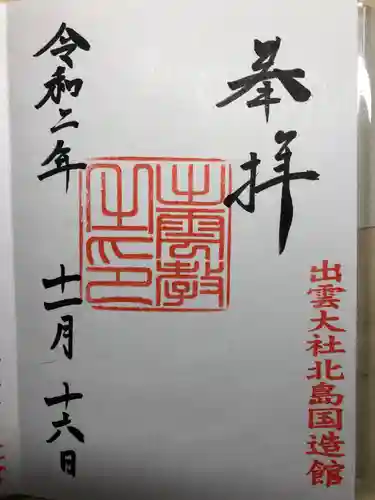 奉拝
出雲大社北島国造館
出雲教之印
令和二年 十一月 十六日